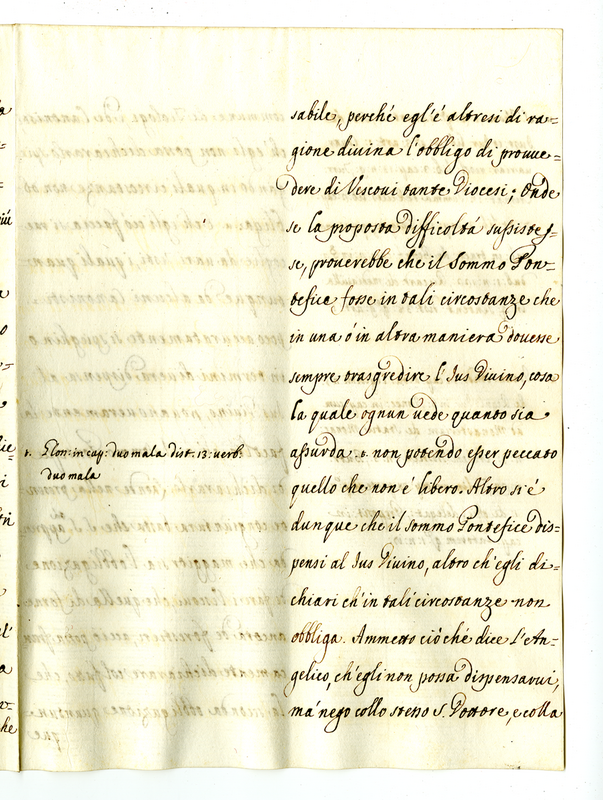 sabile, perché egl'é altresi di ra=
gione divina l'obbligo di provve=
dere di Vescovi tante Diocesi; Onde
se la proposta difficoltá sussistes-
se, proverebbe che il Sommo Pon-
tefice fosse in tali circostanze che
in una ó in altra maniera dovesse
sempre trasgredire l'Jus Divino, cosa
la quale ognun vede quanto sia
assurda. t. non potendo esser peccato
t. Glon: in cap: duo mala dist. 13. verb:
duo mala
quello che non é libero. Altro si é
dunque che il sommo Pontefice dis=
pensi al Jus Divino, altro ch'egli di=
chiari ch'in tali circostanze non
obbliga. Ammetto ció ché dice l'An=
gelico, ch'egli non possa dispensarvi,
má nego collo stesso S. Dottore, e colla